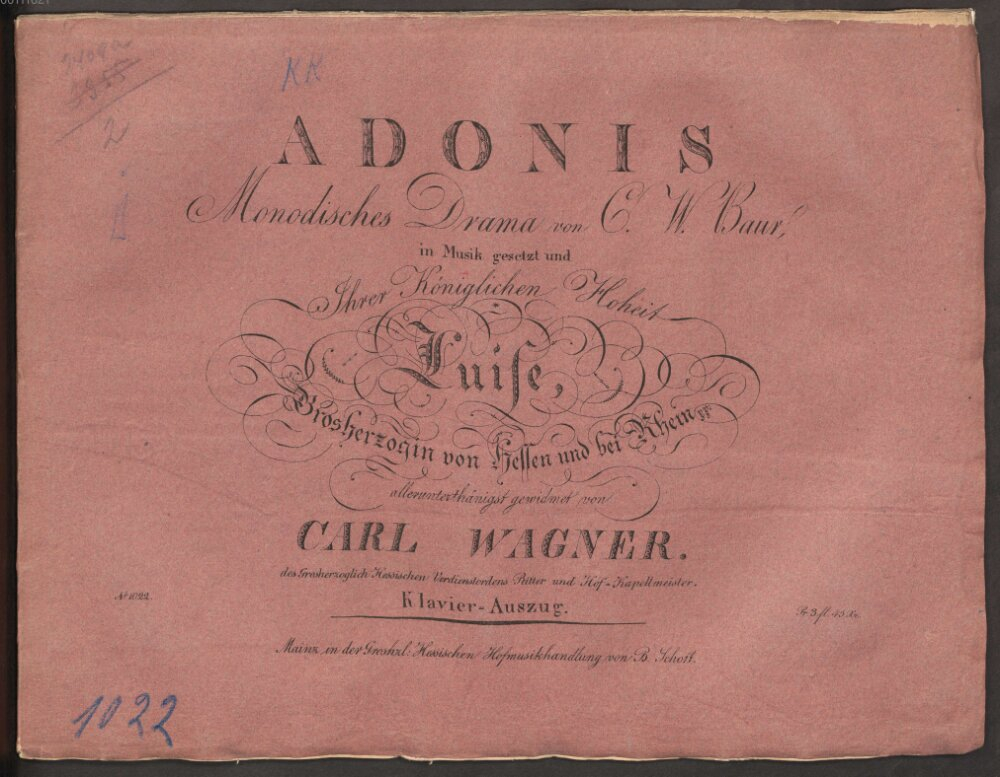 00111621
2
KK
ADONIS
Monodisches Drama von C. W. Baur,
in Musik gesetzt und
Ihrer Königlichen Hoheit
Luiſe,
Grosherzogin von Heſſen und bei Rhein
allerunterthänigst gewidmet von
CARL WAGNER.
des Grosherzoglich Hessischen Verdienstordens Ritter und Hof-Kapellmeister.
Klavier-Auszug.
No 1022.
Pr. 3 fl. 45 Xr.
Mainz in der Groshzl: Hessischen Hofmusikhandlung von B. Schott.
1022